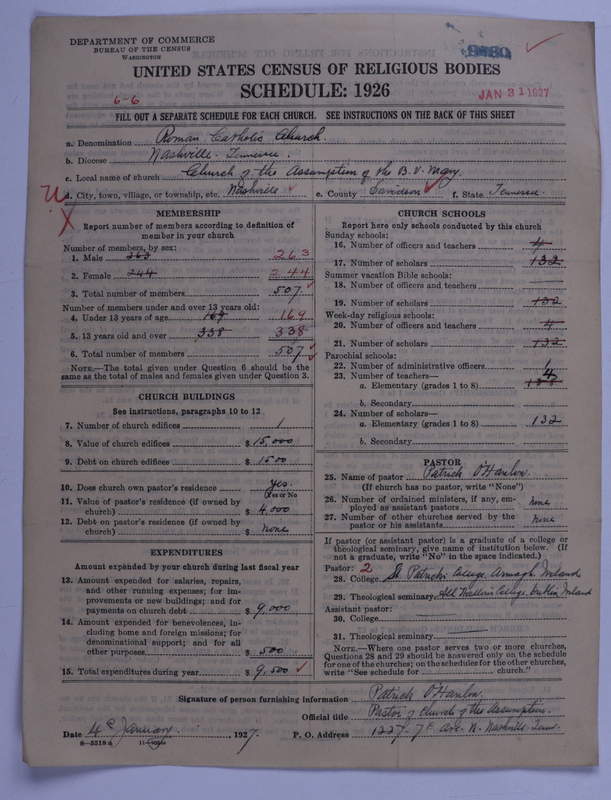 DEPARTMENT OF COMMERCE
BUREAU OF THE CENSUS
WASHINGTON
UNITED STATES CENSUS OF RELIGIOUS BODIES
SCHEDULE: 1926
6-6
JAN 31 1927
FILL OUT A SEPARATE SCHEDULE FOR EACH CHURCH. SEE INSTRUCTIONS ON THE BACK OF THIS SHEET
a. Denomination Roman Catholic Church.
b. Diocese Nashville. Tennessee.
c. Local name of church Church of the Assumption of the B. V. Mary.
d. City, town, village, or township, etc. Nashville e. County Davidson f. State Tennessee.
MEMBERSHIP
Report number of members according to definition of
member in your church
Number of members, by sex:
1. Male 263 263
2. Female 244 244
3. Total number of members 507
Number of members under and over 13 years old:
4. Under 13 years of age 169 169
5. 13 years old and over 338 338
6. Total number of members 507
NOTE.—The total given under Question 6 should be the
same as the total of males and females given under Question 3.
CHURCH BUILDINGS
See instructions, paragraphs 10 to 12
7. Number of church edifices 1
8. Value of church edifices $ 15,000
9. Debt on church edifices $ 1500
10. Does church own pastor's residence yes.
(Yes or No
11. Value of pastor's residence (if owned by
church) $ 4,000
12. Debt on pastor's residence (if owned by
church) $ none
EXPENDITURES
Amount expended by your church during last fiscal year
13. Amount expended for salaries, repairs,
and other running expenses; for im-
provements or new buildings; and for
payments on church debt $ 9,000
14. Amount expended for benevolences, in-
cluding home and foreign missions; for
denominational support; and for all
other purposes $ 500
15. Total expenditures during year $ 9,500
CHURCH SCHOOLS
Report here only schools conducted by this church
Sunday schools:
16. Number of officers and teachers 4
17. Number of scholars 132
Summer vacation Bible schools:
18. Number of officers and teachers
19. Number of scholars 132
Week-day religious schools:
20. Number of officers and teachers 4
21. Number of scholars 132
Parochial schools:
22. Number of administrative officers 1
23. Number of teachers— 4
a. Elementary (grades 1 to 8)
b. Secondary
24. Number of scholars—
a. Elementary (grades 1 to 8) 132
b. Secondary
PASTOR
25. Name of pastor Patrick O'Hanlon.
(If church has no pastor, write "None")
26. Number of ordained ministers, if any, em-
ployed as assistant pastors none
27. Number of other churches served by the
pastor or his assistants none
If pastor (or assistant pastor) is a graduate of a college or
theological seminary, give name of institution below. (If
not a graduate, write "No" in the space indicated.)
Pastor: 2
28. College St. Patricks College, Armagh, Ireland
29. Theological seminary All Hallows College, Dublin, Ireland
Assistant pastor:
30. College
31. Theological seminary
NOTE.—Where one pastor serves two or more churches,
Questions 28 and 29 should be answered only on the schedule
for one of the churches; on the schedules for the other churches,
write "See schedule for church."
Signature of person furnishing information Patrick O'Hanlon.
Official title Pastor of Church of the Assumption.
Date 4th January, 1927. P. O. Address 1227-7th Ave. N. Nashville. Tenn.
8—5318a